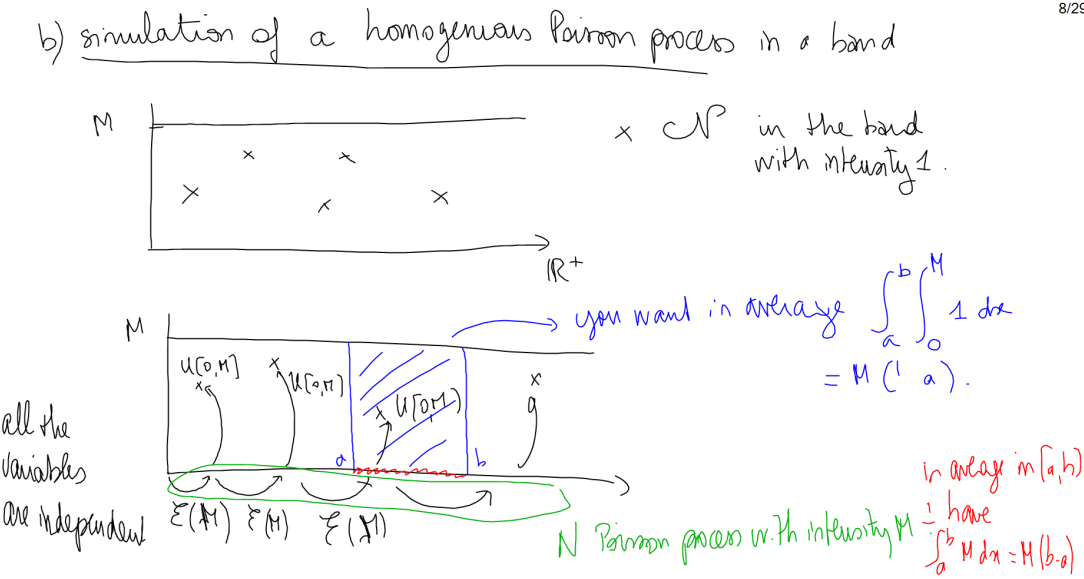 8/29
b) simulation of a homogenious Poisson process in a band
M
x N in the band
with intensity 1.
ℝ⁺
you want in average ∫_a^b ∫_0^M 1 dx
= M ( a).
M
U[0,M]
x
x
U[0,M]
x U[0,M)
x
a
b
all the
variables
are independent
ℰ(M) ℰ(M) ℰ(M)
N Poisson process with intensity M
in average in [a,b)
i have
∫_a^b M dx = M(b-a)